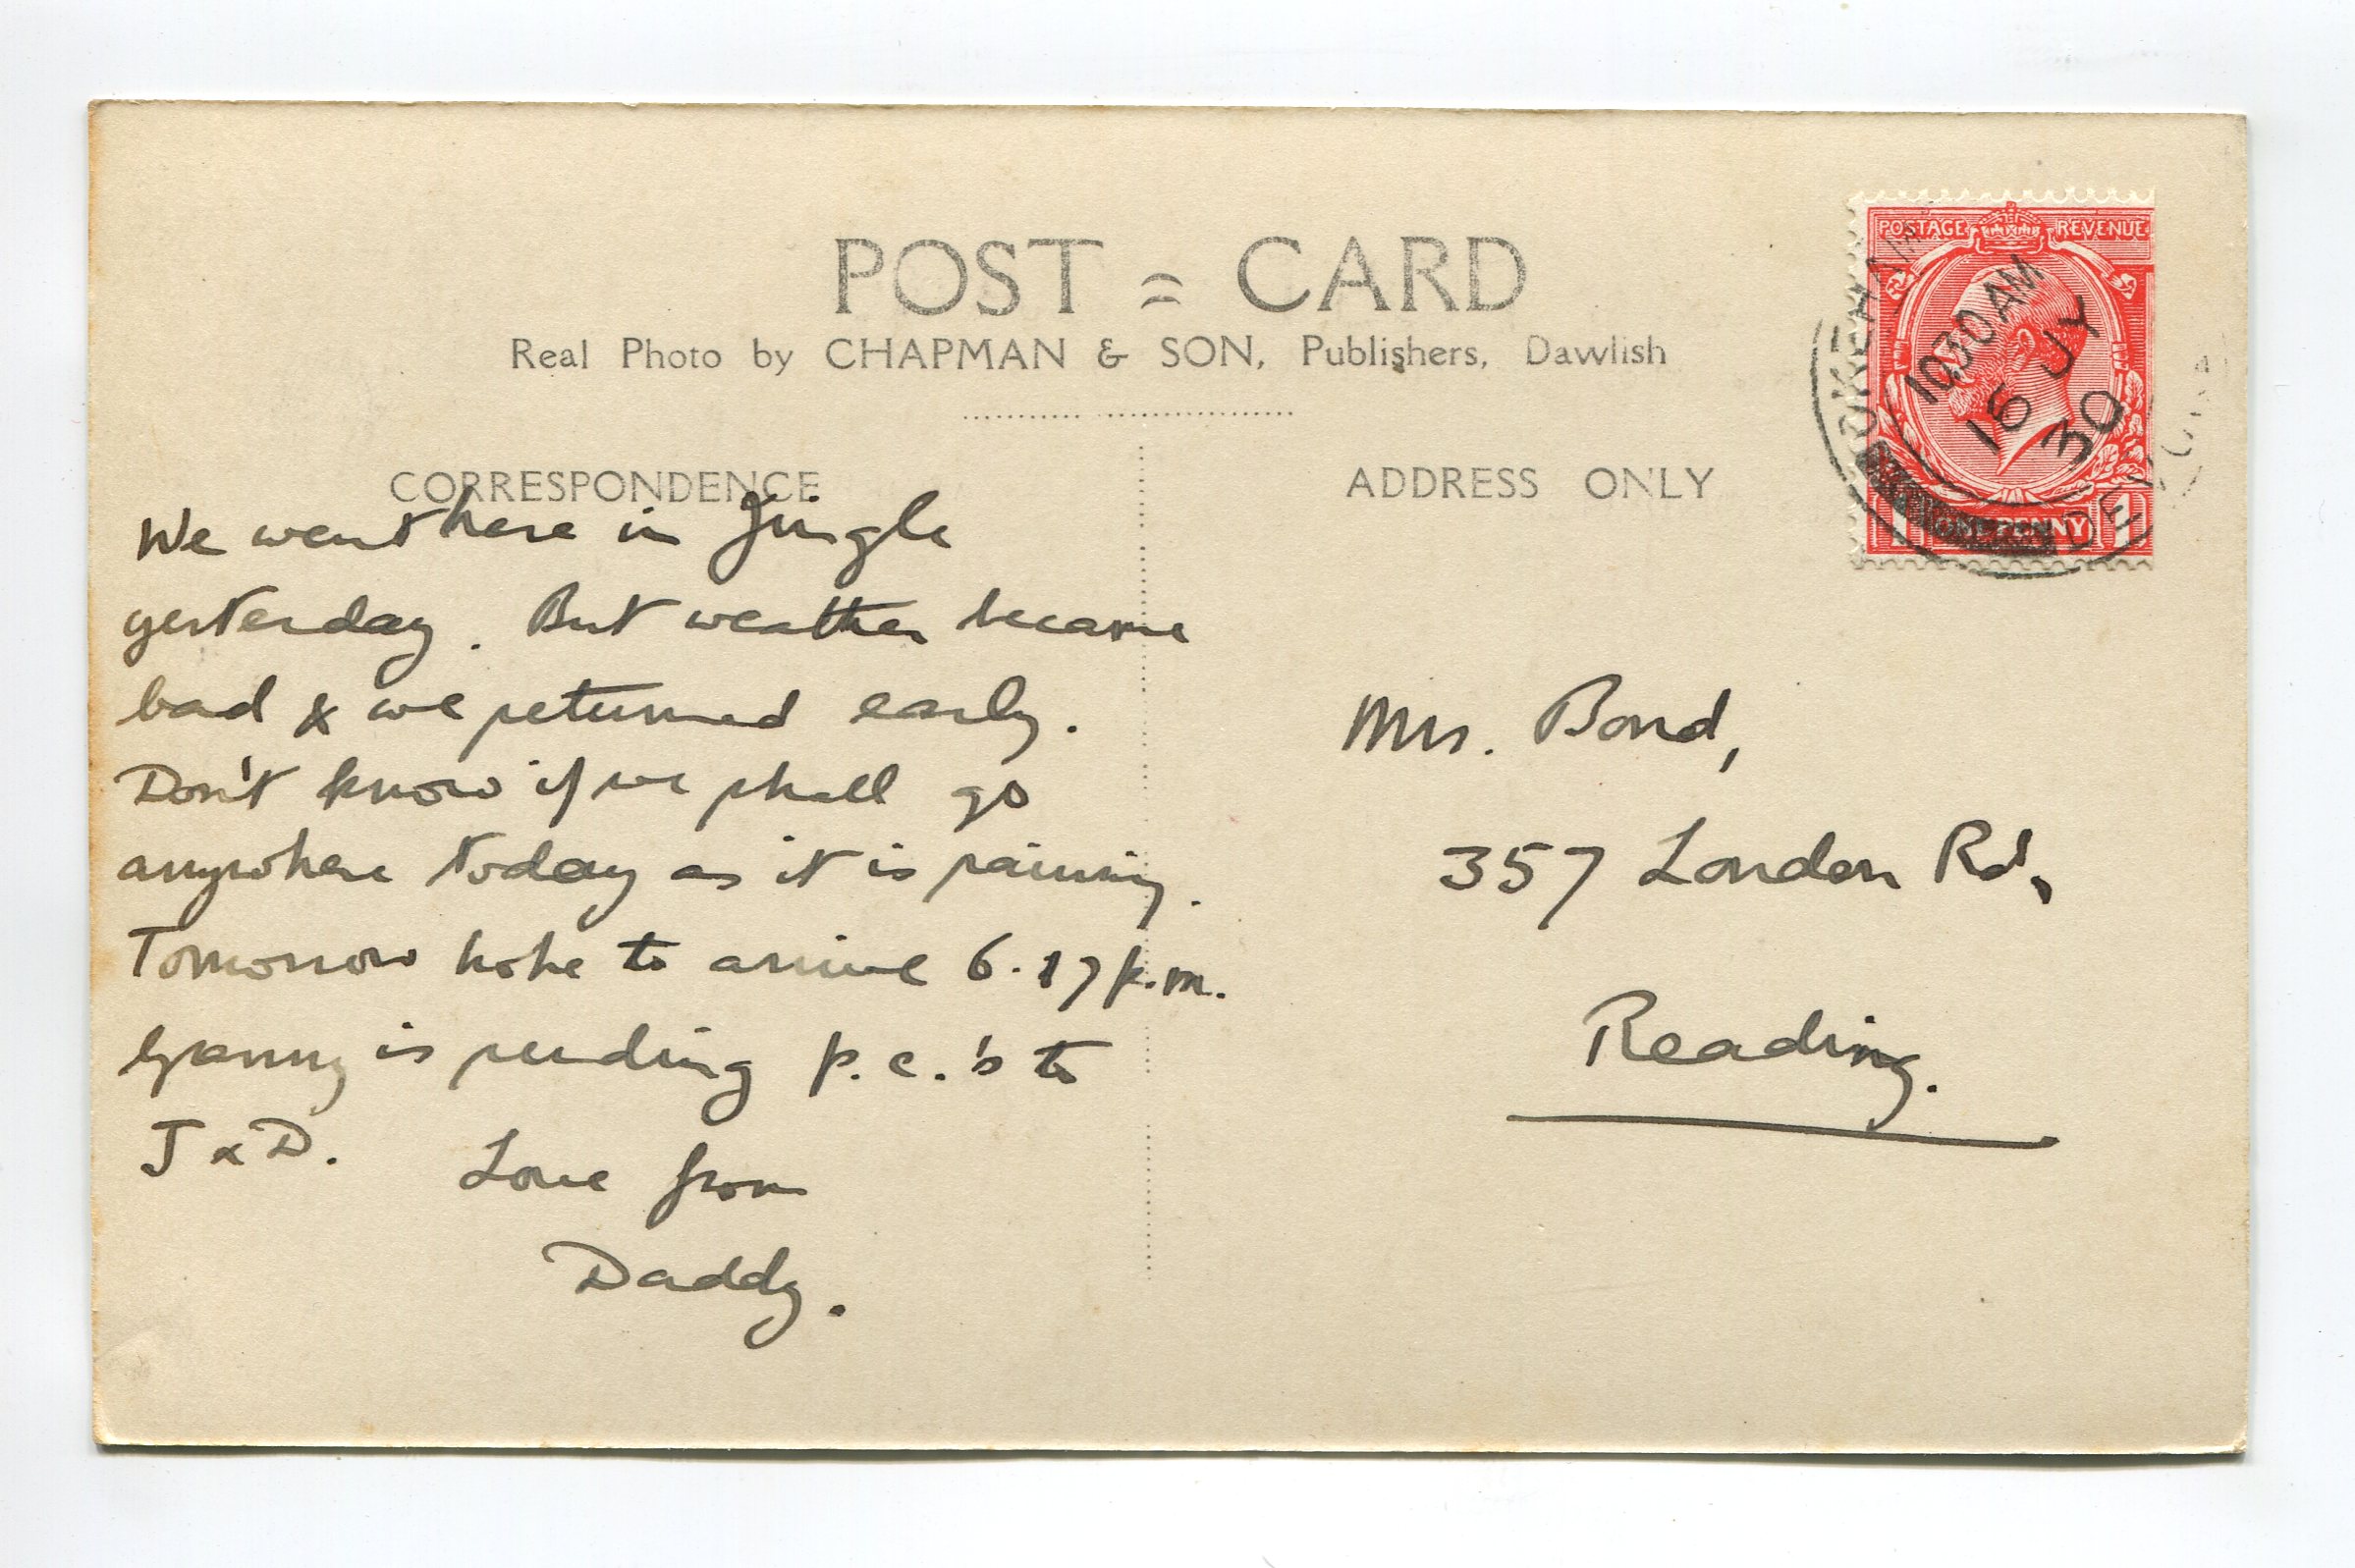 POST = CARD
Real Photo by CHAPMAN & SON, Publishers, Dawlish
CORRESPONDENCE
We went here in Jingle
yesterday. But weather became
bad & we returned early.
Don't know if we shall go
anywhere today as it is raining.
Tomorrow hope to arrive 6.17 p.m.
Granny is sending p.c.'s to
J & D. Love from
Daddy.
ADDRESS ONLY
Mrs. Bond,
357 London Rd,
Reading.
POSTAGE REVENUE
1 ONE PENNY 1
OKEHAMPTON
10 30 AM
16 JY
30
DEVON